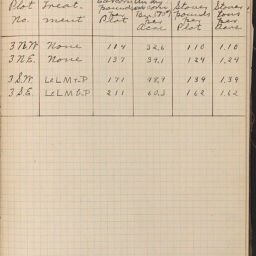 Plot Treat. pounds Stover Stover
No. ment per pounds tons
Plot per Acre per Plot per Acre
3 N.W. None 114 32.6 110 1.10
3 N.E. None 137 39.1 124 1.24
3 S.W. LeLM+P 171 48.9 139 1.39
3 S.E. LeLM+P 211 60.3 162 1.62